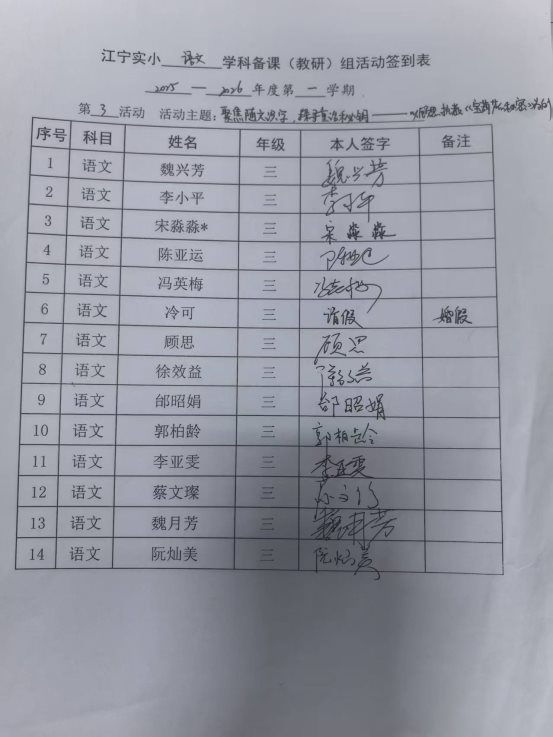 江宁实小 语文 学科备课（教研）组活动签到表
2025 — 2026 年度第 一 学期
第 3 活动 活动主题：聚焦随文识字，
序号 科目 姓名 年级 本人签字 备注
1 语文 魏兴芳 三 魏兴芳
2 语文 李小平 三 李小平
3 语文 宋淼淼* 三 宋淼淼
4 语文 陈亚运 三 陈亚运
5 语文 冯英梅 三 冯英梅
6 语文 冷可 三 请假 婚假
7 语文 顾思 三 顾思
8 语文 徐效益 三 徐效益
9 语文 邰昭娟 三 邰昭娟
10 语文 郭柏龄 三 郭柏龄
11 语文 李亚雯 三 李亚雯
12 语文 蔡文璨 三
13 语文 魏月芳 三 魏月芳
14 语文 阮灿美 三 阮灿美